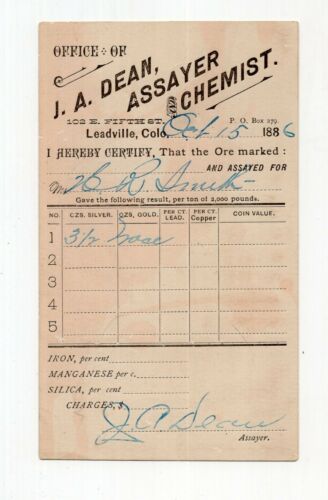 OFFICE OF
J. A. DEAN,
ASSAYER
AND CHEMIST.
102 E. FIFTH ST. P. O. Box 279.
Leadville, Colo, Oct 15 1886
I HEREBY CERTIFY, That the Ore marked :
AND ASSAYED FOR
M R Smith
Gave the following result, per ton of 2,000 pounds.
NO. OZS. SILVER. OZS, GOLD. PER CT. LEAD. PER CT. Copper COIN VALUE.
1 3½
2
3
4
5
IRON, per cent
MANGANESE per c.
SILICA, per cent
CHARGES, $
J A Dean
Assayer.